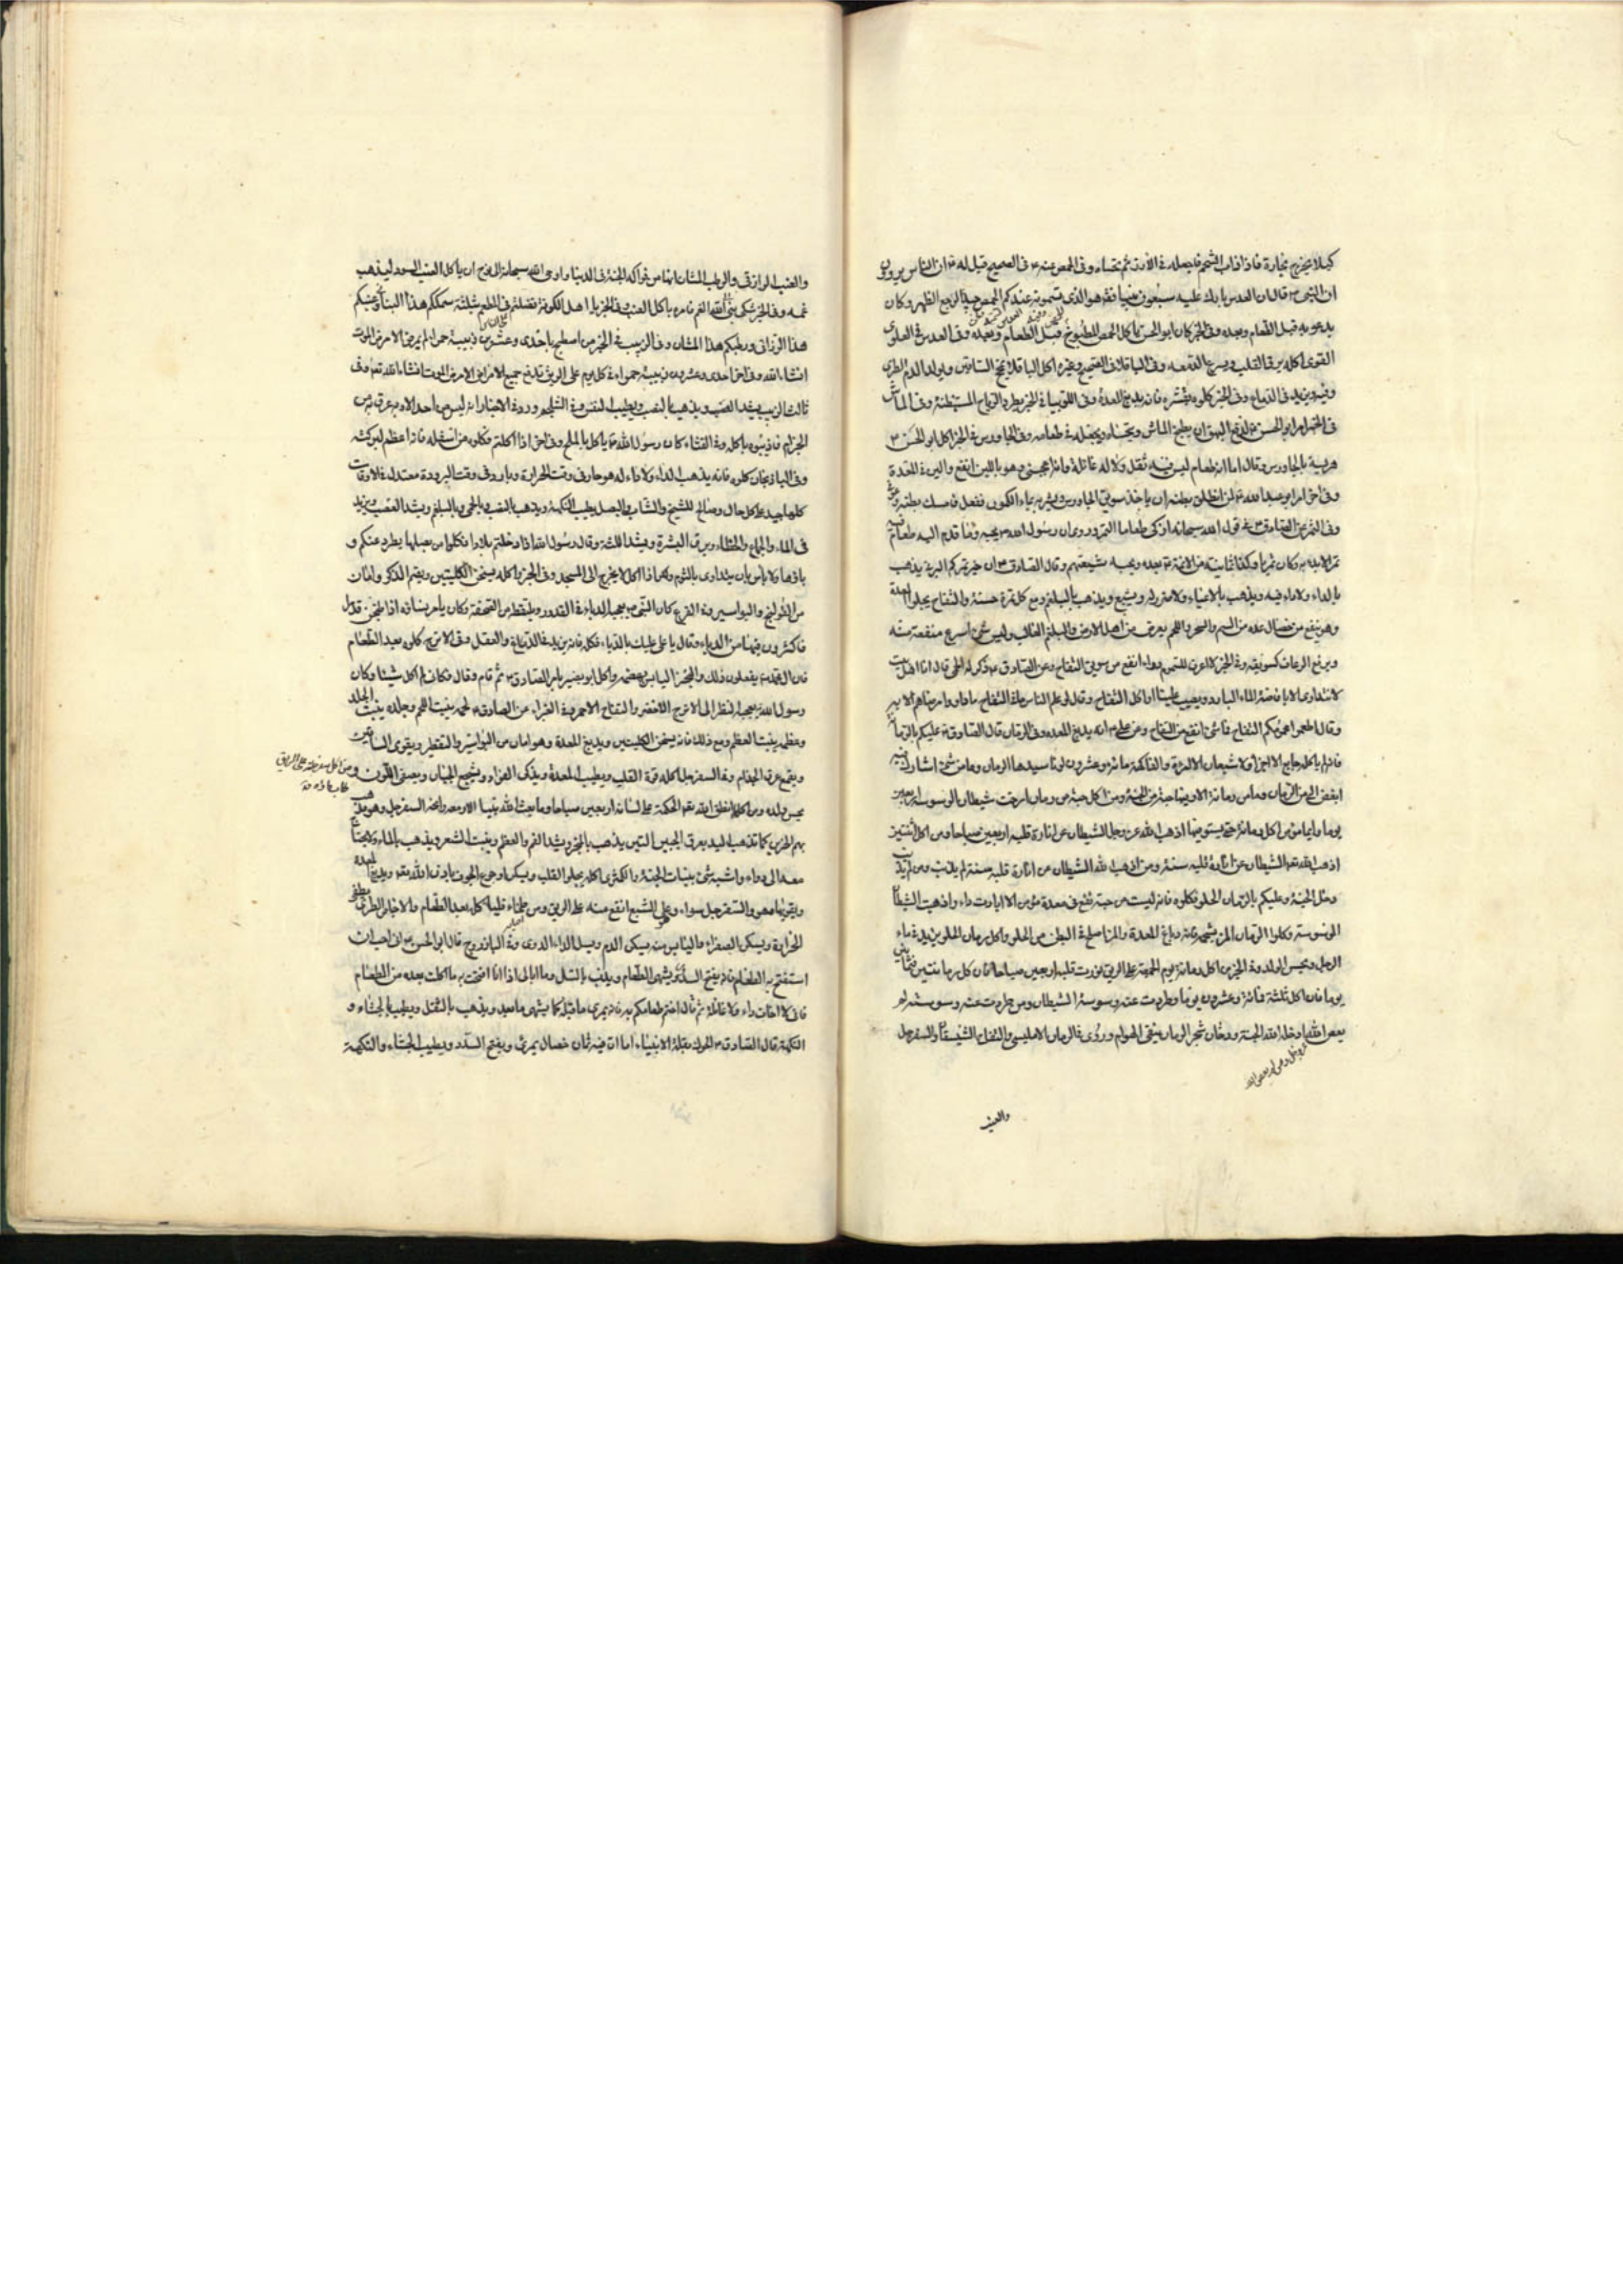 كيلا يخرج بخاره فاذا ذاب الشحم فاجعله في الارز ثم تحساه وفي الحمص عنه ع في الصحيح قيل له ع ان الناس يروون
ان النبي ص قال ان العدس بارك عليه سبعون نبيا فقه هو الذي تسمونه عندكم الحمص جيد لوجع الظهر وكان
يدعو به قبل الطعام وبعده وفي الخبر كان ابو الحسن يأكل الحمص المطبوخ قبل الطعام وبعده وفي العدس
القوى اكله يرق القلب ويسرع الدمعه وفي الباقلا في الصحيح وغيره اكل الباقلا يمخ الساقين ويولد الدم الطري
ويزيد في الدماغ وفي الخبر كلوه بقشره فانه يدبغ المعدة وفي اللوبيا في الخبر يطرد الرياح المستبطنة وفي الماش
في الخبر امر ابو الحسن ان يطبخ الماش ويتحساه ويجعله في طعامه وفي الجاورس في الخبر اكل ابو الحسن ع
هريسة بالجاورس وقال اما انه طعام ليس فيه ثقل ولا له غائلة وانه اعجبني وهو باللبن انفع والين في المعدة
وفي اخر امر ابو عبد الله ع لمن انطلق بطنه ان ياخذ سويق الجاورس ويشربه بماء الكمون ففعل فامسك بطنه
وفي التمر عن الصادق ع في قول الله سبحانه ازكى طعاما التمر وروى ان رسول الله ص يحبه وما قدم اليه طعام فيه
تمر الا بدء به وكان تمريا وكذا ثمانية من الائمة ع بعده ويحبه شيعتهم وقال الصادق ع ان خير تمركم البرني يذهب
بالداء ولا داء فيه ويذهب بالاعياء ولا ضرر له ويشبع ويذهب بالبلغم ومع كل تمرة حسنة والتفاح يجلو المعدة
وهو ينفع من خصال عده من السم والسحر واللمم يعرض من اهل الارض والبلغم الغالب وليس شئ اسرع منفعة منه
ويرفع الرعاف كسويقه وفي الخبر لا اعرف للسموم دواء انفع من سويق التفاح وعن الصادق ع ذكر له الحمى قال انا اهل بيت
لا نتداوى الا بافاضة الماء البارد ويصب علينا او اكل التفاح وقال لو يعلم الناس ما في التفاح ما داووا مرضاهم الا به
وقال اطعموا محموميكم التفاح فما شئ انفع من التفاح وعن علي ع انه يدبغ المعده وفي الرمان قال الصادق ع عليكم بالرمان
فانه لم ياكله جايع الا اجزاه ولا شبعان الا امراه والفاكهة مائة وعشرون لونا سيدها الرمان وما من شئ اشارك فيه
ابغض الى من الرمان وما من رمانة الا وفيها حبة من الجنة ومن اكل حبة من رمان امرضت شيطان الوسوسة اربعين
يوما وايما مؤمن اكل رمانة حتى يستوفيها اذهب الله عز وجل الشيطان عن انارة قلبه اربعين صباحا ومن اكل اثنتين
اذهب الله الشيطان عن انارة قلبه سنة ومن اذهب الله الشيطان عن انارة قلبه سنة لم يذنب ومن لم يذنب
دخل الجنة وعليكم بالرمان الحلو فكلوه فانه ليست من حبة تقع في معدة مؤمن الا ابادت داء واذهبت شيطان
الوسوسة وكلوا الرمان المز بشحمه فانه دباغ المعدة والمز اصلح في البطن من الحلو واكل رمان الحلو يزيد في ماء
الرجل ويحسن الولد وفي الخبر من اكل رمانة يوم الجمعة على الريق نورت قلبه اربعين صباحا فان اكل رمانتين فثمانين
يوما فان اكل ثلثة فمائة وعشرون يوما وطردت عنه وسوسة الشيطان ومن طردت عنه وسوسته لم
يعص الله ادخله الله الجنة ودخان شجر الرمان ينفي الهوام وروى في الرمان الامليسي والتفاح الشيسقان والسفرجل
عز وجل ومن لم يعص الله
والعنب
والعنب الرازقي والرطب المشان انها من فواكه الجنة في الدنيا واوحى الله سبحانه الى نوح ان ياكل العنب الاسود ليذهب
غمه وفي الخبر شكى نبي الى الله الغم فامره باكل العنب وفي الخبر يا اهل الكوفة فضلتم في المطعم بثلثة سمككم هذا البناني وعنبكم
هذا الرازقي ورطبكم هذا المشان وفي الزبيب في الخبر من اصطبح باحدى وعشرين زبيبة حمراء لم يمرض الا مرض الموت
انشاء الله وفي اخر احدى وعشرون زبيبة حمراء في كل يوم على الريق تدفع جميع الامراض الا مرض الموت انشاء الله تع وفي
ثالث الزبيب يشد العصب ويذهب بالنصب ويطيب النفس وفي الشلجم وردت الاخبار انه ليس من احد الا وبه عرق من
الجذام فاذيبوه باكله وفي القثاء كان رسول الله ص ياكل بالملح وفي اخر اذا اكلتم فكلوه من اسفله فانه اعظم لبركته
وفي الباذنجان كلوه فانه يذهب الداء ولا داء له هو حار في وقت الحرارة وبارد في وقت البرودة معتدل في الاوقات
كلها جيد على كل حال وصالح للشيخ والشاب والبصل يطيب النكهة ويذهب بالنصب والحمى والبلغم ويشد العصب ويزيد
في الماء والجماع والخطاء ويرق البشرة ويشد اللثة وقال رسول الله اذا دخلتم بلادا فكلوا من بصلها يطرد عنكم و
باءها ولا باس بان يتداوى بالثوم ولكن اذا اكل لا يخرج الى المسجد وفي الجزر اكله يسخن الكليتين ويقيم الذكر وامان
من القولنج والبواسير وفي القرع كان النبي ص يعجبه الدباء في القدور ويلتقطه من الصحفة وكان يامر نساءه اذا طبخن قدرا
فاكثرن فيها من الدباء وقال يا علي عليك بالدباء فكله فانه يزيد في الدماغ والعقل وفي الاترج كلوه بعد الطعام
فان آل محمد ع يفعلون ذلك والخبز اليابس يهضمه واكل ابو بصير بامر الصادق ع ثم قام وقال فكاني لم اكل شيئا وكان
رسول الله يعجبه النظر الى الاترج الاخضر والتفاح الاحمر وفي الغبراء عن الصادق ع لحمه ينبت اللحم وجلده ينبت الجلد
وعظمه ينبت العظم ومع ذلك فانه يسخن الكليتين ويدبغ المعدة وهو امان من البواسير والتقطير ويقوى الساقين
ويقمع عرق الجذام وفي السفرجل اكله قوة القلب ويطيب المعدة ويذكى الفؤاد ويشجع الجبان ويصفى اللون و
ومن اكل سفرجلة على الريق
طاب ماؤه
يحسن ولده ومن اكله انطق الله تعه الحكمة على لسانه اربعين صباحا وما بعث الله نبيا الا ومعه رائحة السفرجل وهو يذهب
بهم الحزين كما تذهب اليد بعرق الجبين التين يذهب بالبخر ويشد الفم والعظم وينبت الشعر ويذهب بالداء ولا يحتاج
معه الى دواء واشبه شئ بنبات الجنة والكمثرى اكله يجلو القلب ويسكن اوجاع الجوف باذن الله تعه ويدبغ المعدة
ويقويها هو والسفرجل سواء وعلى الشبع انفع منه على الريق ومن طخاء قلبه اكله بعد الطعام والاجاص الطرى يطفي
الحرارة ويسكن الصفراء واليابس منه يسكن الدم ويسل الداء الدوى وفي الباذروج قال ابو الحسن ع اني احب ان
استفتح به الطعام فانه يفتح السدد ويشهى الطعام ويذهب بالسل وما ابالي اذا انا افتتحت به ما اكلت بعده من الطعام
فاني لا اخاف داء ولا غائلة ثم قال اختم طعامكم به فانه يمرئ ما قبله كما يشهى ما بعده ويذهب بالثقل ويطيب الجشاء و
النكهة قال الصادق ع الحوك بقلة الانبياء اما ان فيه ثمان خصال يمرئ ويفتح السدد ويطيب الجشاء والنكهة